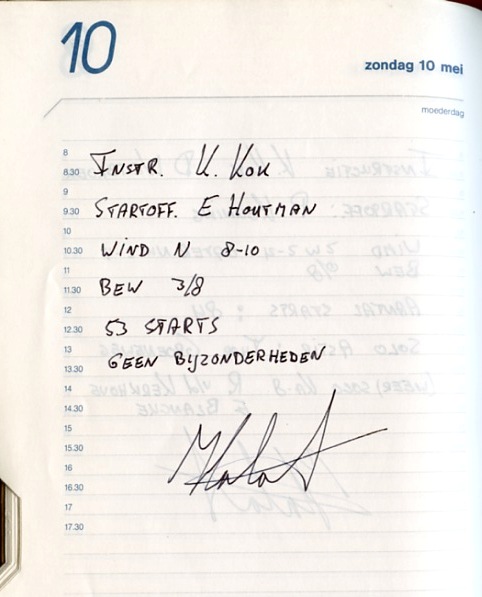 10
zondag 10 mei
moederdag
8
8.30 INSTR. K. KOK
9
9.30 STARTOFF. E HOUTMAN
10
10.30 WIND N 8-10
11
11.30 BEW 3/8
12
12.30 53 STARTS
13
13.30 GEEN BIJZONDERHEDEN
14
14.30
15
15.30
16
16.30
17
17.30